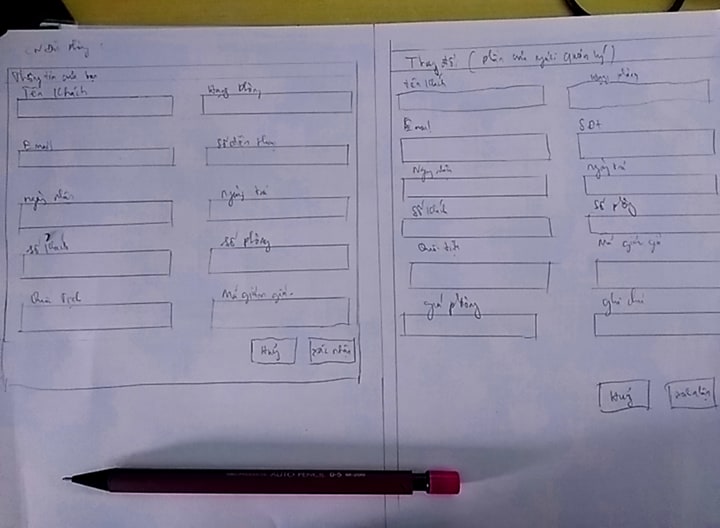 Thông tin của bạn
Tên khách
Hạng phòng
Email
Số điện thoại
ngày nhận
ngày trả
Số khách
Số phòng
Quốc tịch
Mã giảm giá
Huỷ
xác nhận
Thay đổi (phần của người quản lý)
tên khách
Hạng phòng
Email
SĐT
Ngày nhận
ngày trả
Số khách
Số phòng
Quốc tịch
Mã giảm giá
giá phòng
ghi chú
Huỷ
xác nhận